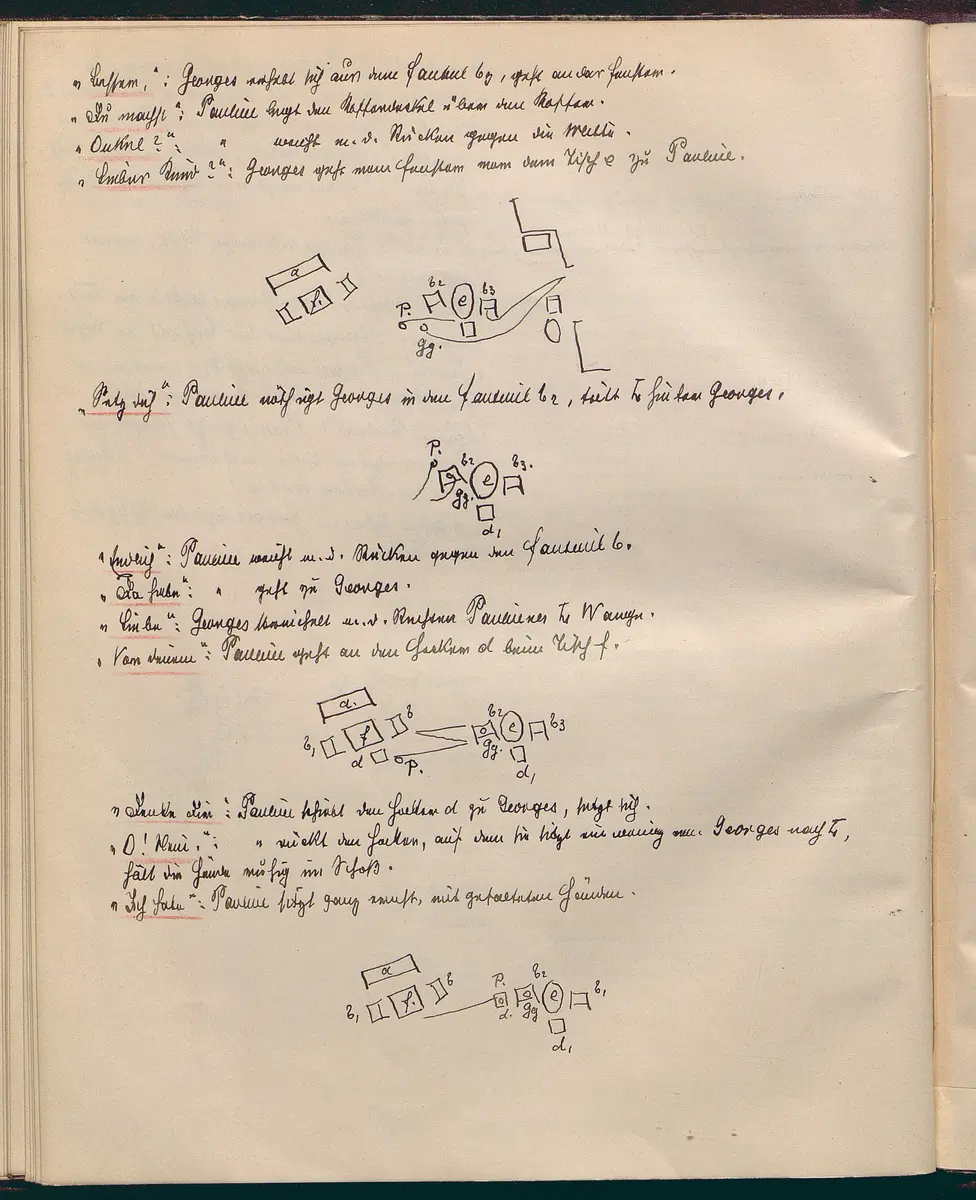 „Bessern,“: Georges erhebt sich aus dem Fauteuil b3, geht an das Fenster.
„Du machst“: Pauline legt den Kofferdeckel über den Koffer.
„Onkel?“: " weicht m. d. Rücken gegen die Mitte.
„Liebes Kind?“: Georges geht vom Fenster vorn dem Tisch e zu Pauline.
a
f.
b2
e
b3
P.
Gg.
„Setz dich“: Pauline nöthigt Georges in den Fauteuil b2, tritt hinter Georges.
P.
b2
e
b3.
Gg.
d1
„Endlich“: Pauline weicht m. d. Rücken gegen den Fauteuil b.
„Da habe“: " geht zu Georges.
„Liebe“: Georges streichelt m. d. Rechten Paulines Wange.
„Von deinem“: Pauline geht an den Hocker d beim Tisch f.
a.
b1
f
b
b2
e
b3
d
P.
Gg.
d1
„Denke Dir“: Pauline schiebt den Hocker d zu Georges, setzt sich.
„O! Nein,“: " rückt den Hocker, auf dem sie sitzt ein wenig von Georges nach
hält die Hände ruhig im Schoß.
„Ich habe“: Pauline sitzt ganz ernst, mit gefalteten Händen.
a
b1
f.
b
P.
b2
e
b1
d.
Gg
d1